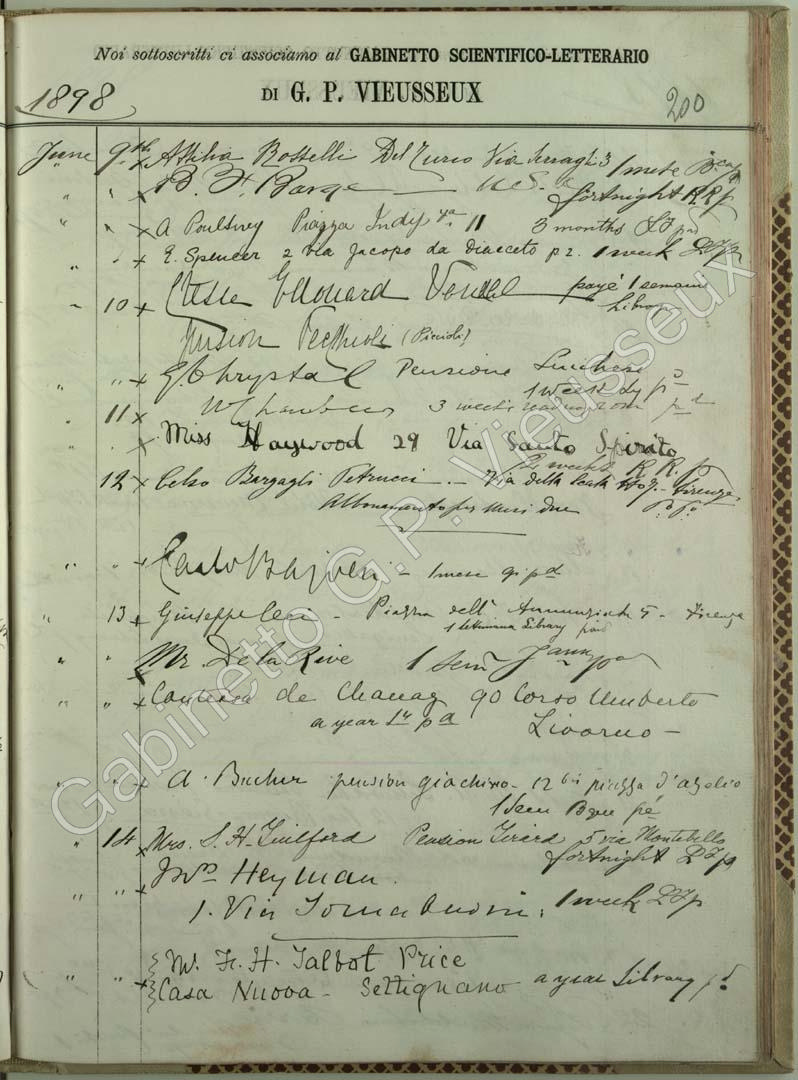 Noi sottoscritti ci associamo al GABINETTO SCIENTIFICO-LETTERARIO
DI G. P. VIEUSSEUX
1898
200
June 9th x Attilia Rosselli Del Turco Via Serragli 3 1 mese
" " x B. H. Barge U.S.A
fortnight R R p
" " x A Poultney Piazza Indip 11 3 months
" " x E. Spencer 2 Via Jacopo da Diacceto p 2. 1 week
" 10 x Ctesse Edouard payé 1 semaine
Library
Pension Vecchioli (Piccioli)
" " x G Chrystal Pensione Luchese
1 week
" 11 x 3 weeks reading room pd
" x Miss Haywood 29 Via Santo Spirito
2 weeks R. R. p
12 x Celso Bargagli Petrucci - Via della Scala Firenze
Abbonamento per mesi due
" " x Carlo - 1 mese
" 13 x Giuseppe Ceci - Piazza dell' Annunziata 5 - Firenze
1 settimana Library paid
" " x Mr. De la Rive 1 sem
" " x Contessa de 90 Corso Umberto
a year pd Livorno -
" " x A. Bucher pension Giachino - 12 bis piazza d'Azelio
1 Sem
" 14 x Mrs. S. H. Guilford Pension Girard 5 via Montebello
fortnight
" " x Mrs Heyman.
1. Via Tornabuoni. 1 week
" " x Mr. F. H. Talbot Price
Casa Nuova - Settignano a year Library pd
Gabinetto G.P. Vieusseux